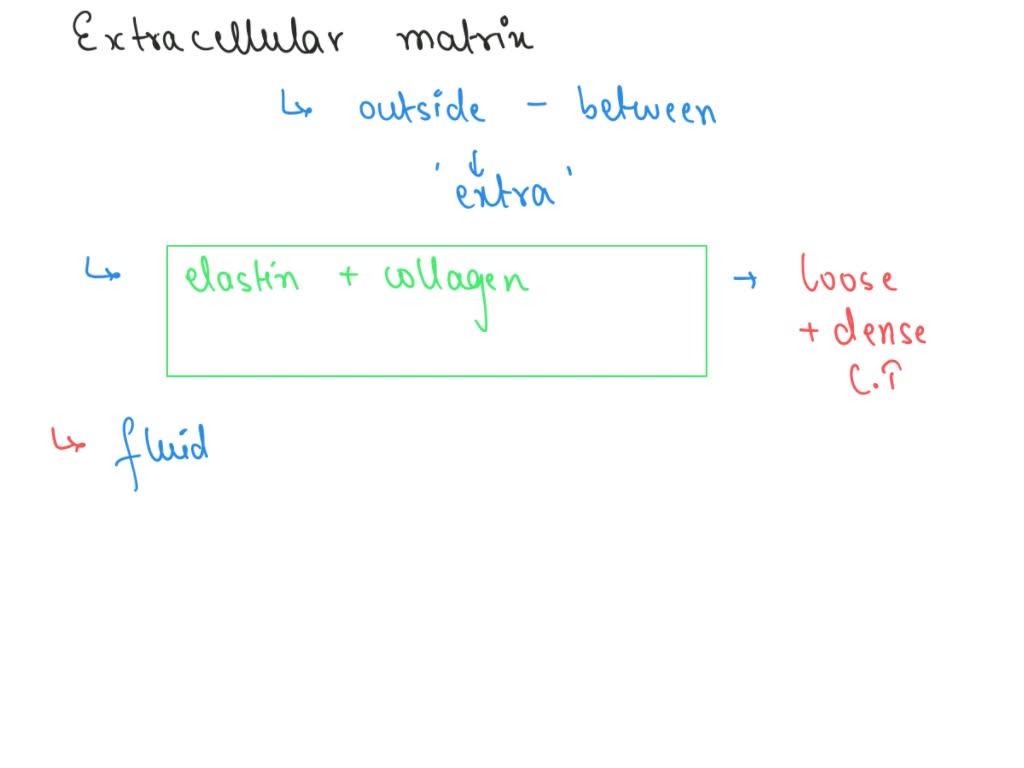 Extracellular matrix
↳ outside - between
↓
'extra'
↳ elastin + collagen → loose
+ dense
C.T
↳ fluid